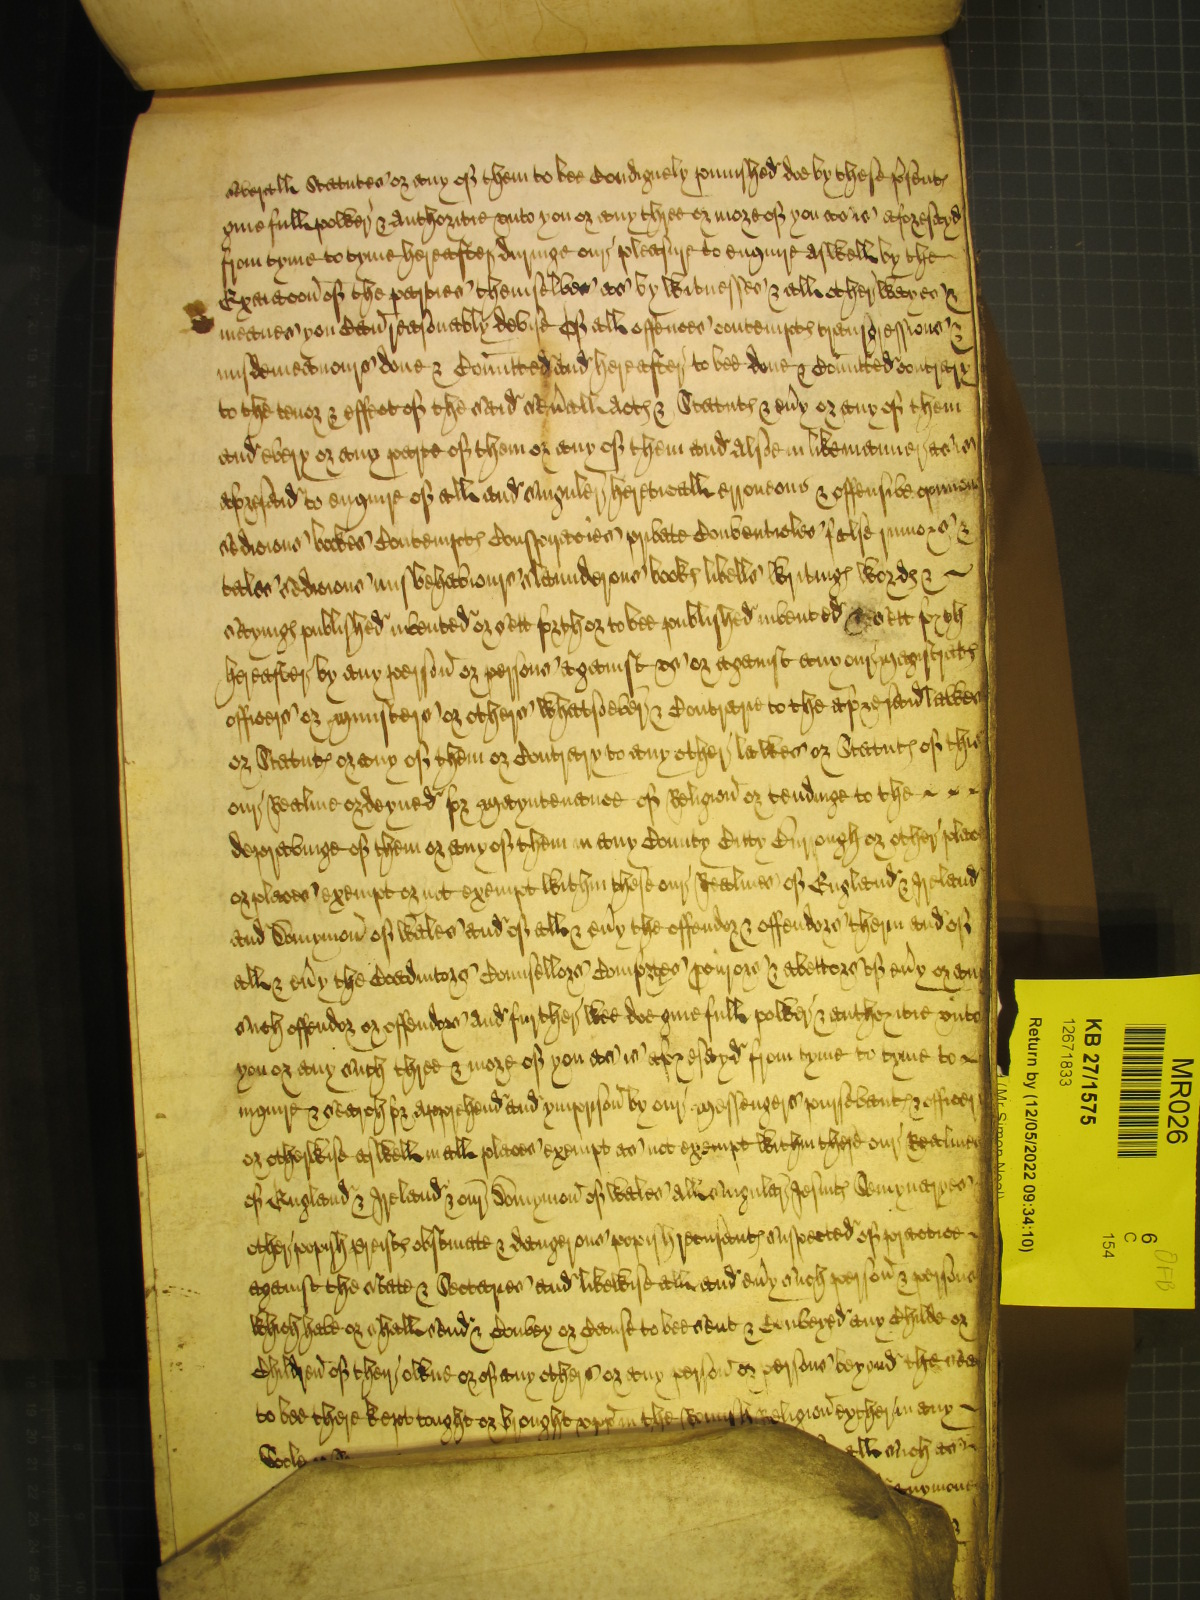 severall Statutes or any of them to bee Condignely punished doe by these p'sents
give full power & Authoritie unto you or any three or more of you as is aforesayd
from tyme to tyme hereafter duringe our pleasure to enquire aswell by the
Examacon of the parties themselves as by witnesses & all other wayes &
meanes you Can reasonably devise Of all offences contempts transgressions &
misdemeanours done & Comitted and hereafter to bee done & Comitted contrary
to the tenor & effect of the said sev'all Acts & Statuts & ev'y or any of them
and every or any parte of them or any of them and Alsoe in like manner as is
aforesaid to enquire of all and singuler hereticall erroneous & offensive opinions
sedicious bookes Contempts Conspiracies private Conventicles false rumors &
tales sedicious misbehaviours slaunderous books libells writings words &
sayings published invented or sett forth or to bee published invented or sett forth
hereafter by any person or persons against us or against any our Magistrats
officers or Ministers or others whatsoever & Contrarie to the aforesaid lawes
or Statuts or any of them or Contrary to any other lawes or Statuts of this
our Realme ordeyned for Mayntenance of Religion or tendinge to the
depravinge of them or any of them in any County Citty Burrough or other place
or places exempt or not exempt within these our Realmes of England & Ireland
and Domynion of Wales and of all & ev'y the offendor & offendors therin and of
all & ev'y the Coadiutors Counsellors Comforters p'curors & abettors of ev'y or any
such offendor or offendors And further wee doe give full power & authoritie unto
you or any such three & more of you as is aforesayd from tyme to tyme to
inquire & search for apprehend and ymprison by our Messengers pursevants & officers
or otherwise aswell in all places exempt as not exempt within these our Realmes
of England & Ireland & our Domynion of Wales All singular Jesuits Semynaryes
other popish preists obstinate & dangerous popish recusants suspected of practice
against the state & Sectaries and likewise all and ev'y such person & persons
which have or shall send & Convey or Cause to bee sent & Conveyed any Childe or
Children of their owne or of any others or any person or persons beyond the sea
to bee there kept taught or brought upp in the Romish Religion eyther in any
all such as
MR026
6
C
154
KB 27/1575
12671833
Return by (12/05/2022 09:34:10)